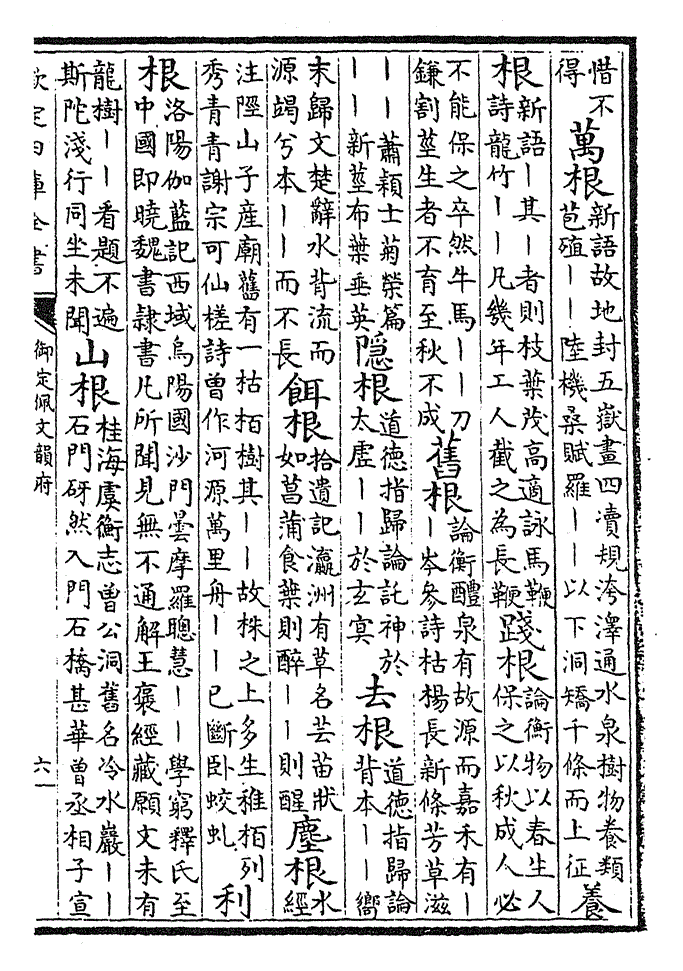 惜不
得
萬根
新語故地封五嶽畫四瀆規洿澤通水泉樹物養類
苞殖——陸機桑賦羅——以下洞矯千條而上征
養
根
新語—其—者則枝葉茂高適詠馬鞭
詩龍竹——凡幾年工人截之為長鞭
踐根
論衡物以春生人
保之以秋成人必
不能保之卒然牛馬——刀
鎌割莖生者不育至秋不成
舊根
論衡醴泉有故源而嘉禾有—
—岑參詩枯楊長新條芳草滋
——蕭穎士菊榮篇
——新莖布葉垂英
隱根
道德指歸論託神於
太虛——於玄冥
去根
道德指歸論
背本——嚮
末歸文楚辭水背流而
源竭兮本——而不長
餌根
拾遺記瀛洲有草名芸苗狀
如菖蒲食葉則醉——則醒
塵根
水
經
注陘山子產廟舊有一枯栢樹其——故株之上多生稚栢列
秀青青謝宗可仙槎詩曾作河源萬里舟——已斷卧蛟虬
利
根
洛陽伽藍記西域烏陽國沙門曇摩羅聰慧——學窮釋氏至
中國即曉魏書隸書凡所聞見無不通解王褒經藏願文未有
龍樹——看題不遍
斯陀淺行同坐未聞
山根
桂海虞衡志曾公洞舊名冷水巖——
石門砑然入門石橋甚華曾丞相子宣
欽定四庫全書
御定佩文韻府
六一